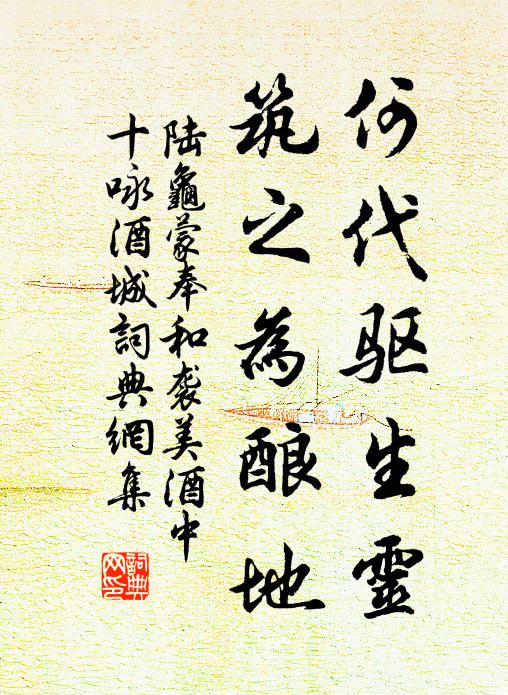 何代驱生靈
筑之為酿地
陆龜蒙奉和袭美酒中
十咏酒城詞典網集
詞典
网印